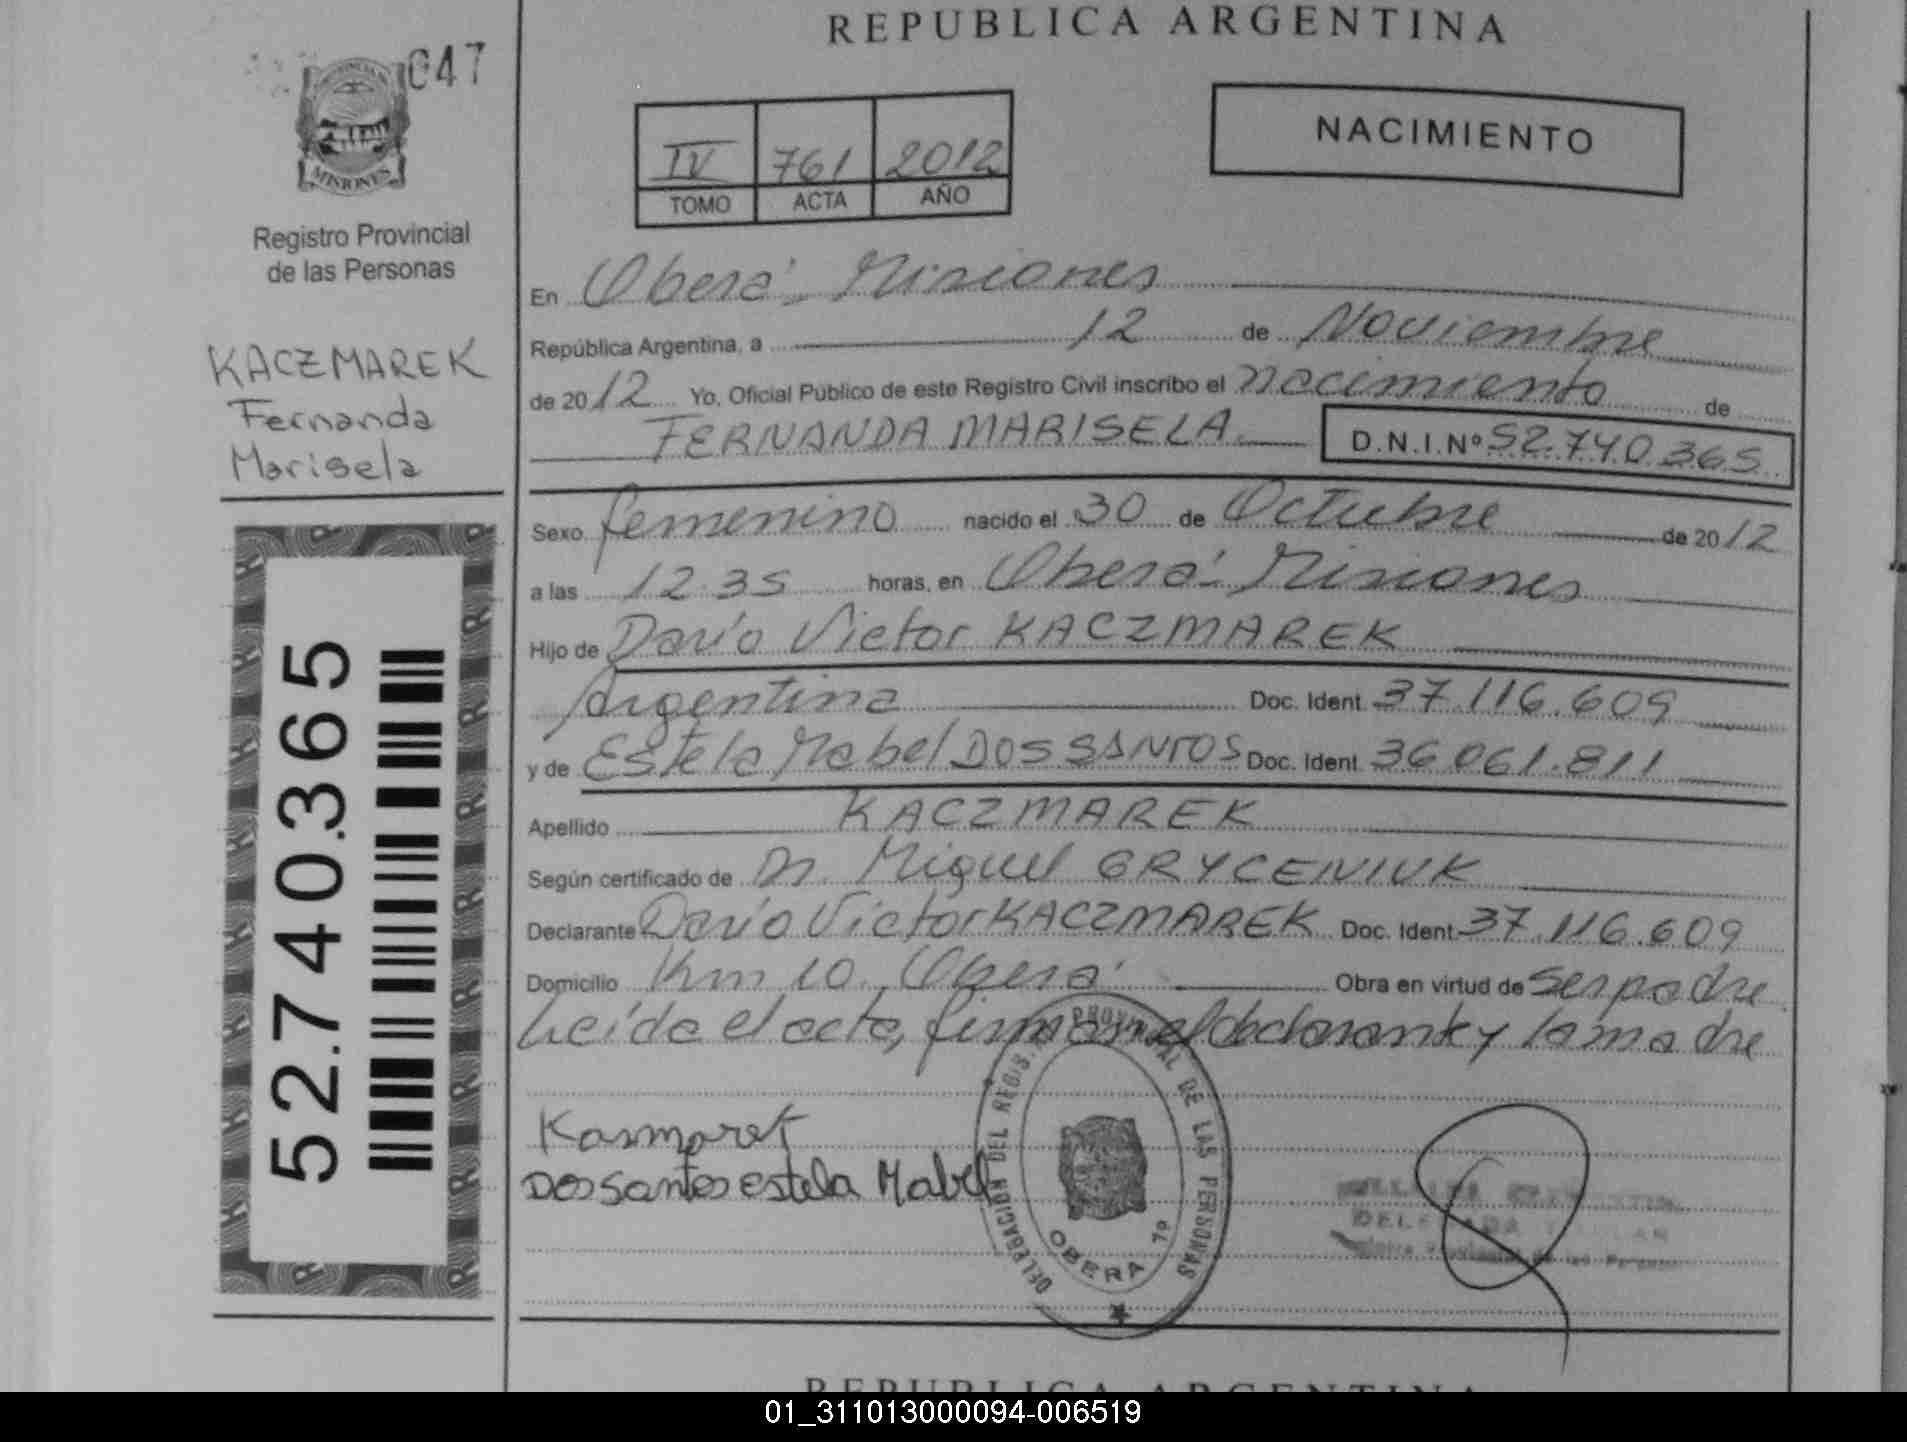 REPUBLICA ARGENTINA
047
PROVINCIA DE
MISIONES
Registro Provincial
de las Personas
KACZMAREK
Fernanda
Marisela
52.740.365
NACIMIENTO
IV 761 2012
TOMO ACTA AÑO
En Oberá - Misiones
República Argentina, a 12 de Noviembre
de 2012 Yo, Oficial Público de este Registro Civil inscribo el nacimiento de
FERNANDA MARISELA D.N.I.Nº 52.740.365
Sexo femenino nacido el 30 de Octubre de 2012
a las 12.35 horas, en Oberá - Misiones
Hijo de Darío Victor KACZMAREK
Argentina Doc. Ident. 37.116.609
y de Estela Mabel DOS SANTOS Doc. Ident. 36.061.811
Apellido KACZMAREK
Según certificado de Dr. Miguel GRYCENIUK
Declarante Darío Victor KACZMAREK Doc. Ident. 37.116.609
Domicilio Km 10. Oberá Obra en virtud de ser padre
Leída el acta, firman el declarante y la madre
Kasmarek
Dos santos estela Mabel
DELEGACION DEL REGIS. PROVINCIAL DE LAS PERSONAS
OBERA 1º
DELEGADA
REPUBLICA ARGENTINA
01_311013000094-006519